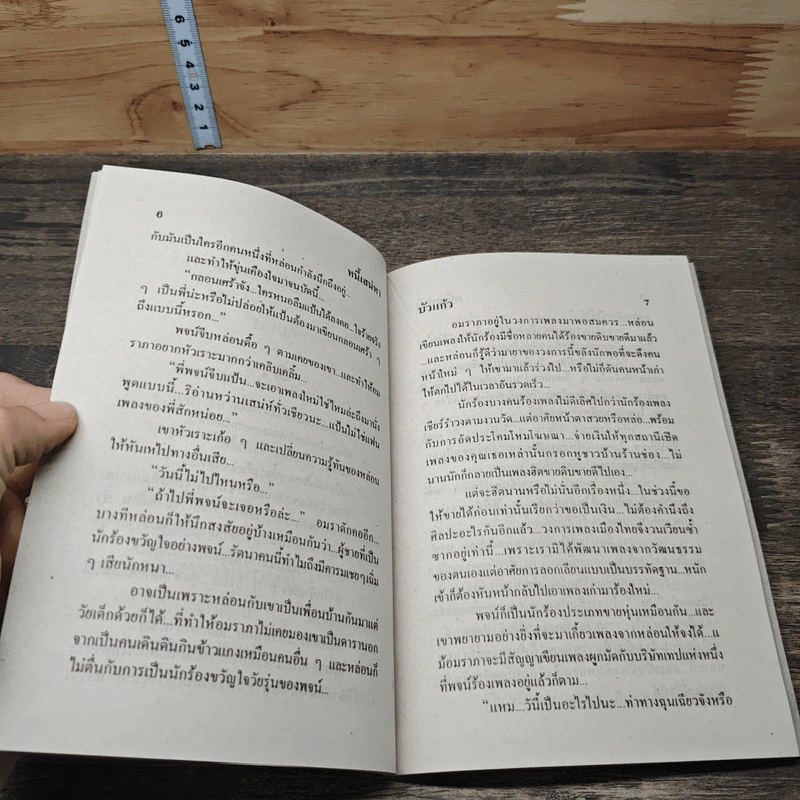 6 5 4 3 2 1
6
หนี้เสน่หา
กับมันเป็นใครอีกคนหนึ่งที่หล่อนกำลังนึกถึงอยู่...
และทำให้ขุ่นเคืองใจมาจนบัดนี้...
“กลอนเศร้าจัง...ใครหนอลืมแป้นได้ลงคอ...ใจร้ายจริง
ๆ เป็นพี่น่ะหรือไม่ปล่อยให้แป้นต้องมาเขียนกลอนเศร้า ๆ
ถึงแบบนี้หรอก...”
พจน์จีบหล่อนดื้อ ๆ ตามเคยของเขา...และทำให้อม
ราภาอยากหัวเราะมากกว่าเคลิบเคลิ้ม...
“พี่พจน์จีบแป้น...จะเอาเพลงใหม่ใช่ไหมล่ะถึงมานั่ง
พูดแบบนี้...ริอ่านหว่านเสน่ห์ทั่วเชียวนะ...แป้นไม่ใช่แฟน
เพลงของพี่สักหน่อย...”
เขาหัวเราะเก้อ ๆ และเปลี่ยนความรู้ทันของหล่อน
ให้หันเหไปทางอื่นเสีย...
“วันนี้ไม่ไปไหนหรือ...”
“ถ้าไปพี่พจน์จะเจอหรือล่ะ...” อมราดักคออีก...
บางทีหล่อนก็ให้นึกสงสัยอยู่บ้างเหมือนกันว่า...ผู้ชายที่เป็น
นักร้องขวัญใจอย่างพจน์...รัตนาคนนี้ทำไมถึงมีคารมเชยๆเฉิ่ม
ๆ เสียนักหนา...
อาจเป็นเพราะหล่อนกับเขาเป็นเพื่อนบ้านกันมาแต่
วัยเด็กด้วยก็ได้...ที่ทำให้อมราภาไม่เคยมองเขาเป็นดารานอก
จากเป็นคนเดินดินกินข้าวแกงเหมือนคนอื่น ๆ และหล่อนก็
ไม่ตื่นกับการเป็นนักร้องขวัญใจวัยรุ่นของพจน์...
บัวแก้ว
7
อมราภาอยู่ในวงการเพลงมาพอสมควร...หล่อน
เขียนเพลงให้นักร้องมีชื่อหลายคนได้ร้องขายดิบขายดีมาแล้ว
...และหล่อนก็รู้ดีว่ามายาของวงการนี้ขลังนักพอที่จะดึงคน
หน้าใหม่ ๆ ให้เขามาแล้วร่วงไป...หรือไม่ก็ดันคนหน้าเก่า
ให้ตกไปได้ในเวลาอันรวดเร็ว...
นักร้องบางคนร้องเพลงไม่ดีเลิศไปกว่านักร้องเพลง
เชียร์รำวงตามงานวัด...แต่อาศัยหน้าตาสวยหรือหล่อ...พร้อม
กับการอัดประโคมโหมโฆษณา...จ่ายเงินให้ทุกสถานีเปิด
เพลงของคุณเธอเหล่านั้นกรอกหูชาวบ้านร้านช่อง...ไม่
นานนักก็กลายเป็นเพลงฮิตขายดิบขายดีไปเอง...
แต่จะฮิตนานหรือไม่นั่นอีกเรื่องหนึ่ง...ในช่วงนี้ขอ
ให้ขายได้ก่อนเท่านั้นเรียกว่าขอเป็นเงิน...ไม่ต้องคำนึงถึง
ศิลปะอะไรกันอีกแล้ว...วงการเพลงเมืองไทยจึงวนเวียนซ้ำ
ซากอยู่เท่านี้...เพราะเรามิได้พัฒนาเพลงจากวัฒนธรรม
ของตนเองแต่อาศัยการลอกเลียนแบบเป็นบรรทัดฐาน...หนัก
เข้าก็ต้องหันหน้ากลับไปเอาเพลงเก่ามาร้องใหม่...
พจน์ก็เป็นนักร้องประเภทขายหุ่นเหมือนกัน...และ
เขาพยายามอย่างยิ่งที่จะมาเกี้ยวเพลงจากหล่อนให้จงได้...แ
ม้อมราภาจะมีสัญญาเขียนเพลงผูกมัดกับบริษัทเทปแห่งหนึ่ง
ที่พจน์ร้องเพลงอยู่แล้วก็ตาม...
“แหม...วันี้เป็นอะไรไปนะ...ท่าทางฉุนเฉียวจังหรือ